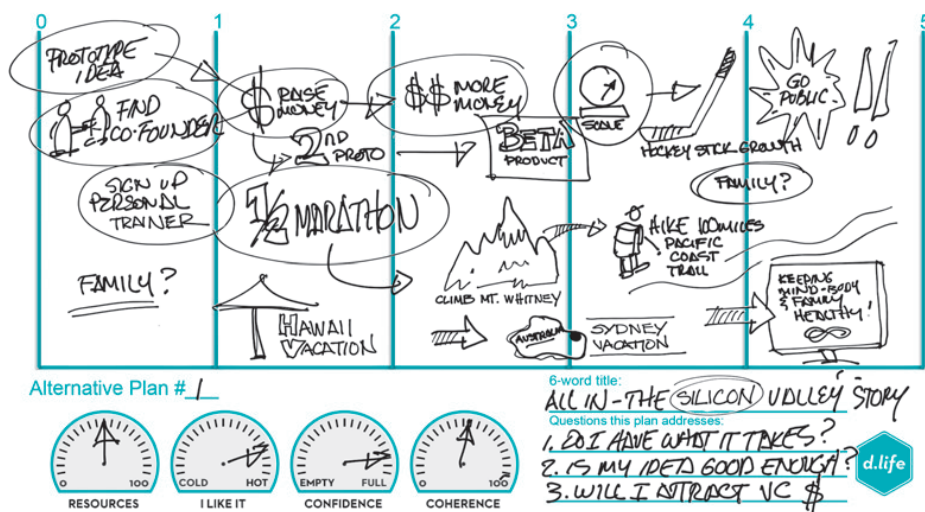 0 1 2 3 4 5
PROTOTYPE
IDEA
FIND
CO-FOUNDER
SIGN UP
PERSONAL
TRAINER
FAMILY?
$ RAISE
MONEY
2ND
PROTO
1/2 MARATHON
HAWAII
VACATION
$$ MORE
MONEY
BETA
PRODUCT
CLIMB MT. WHITNEY
AUSTRALIA
SCALE
HIKE 100 MILES
PACIFIC
COAST
TRAIL
SYDNEY
VACATION
HOCKEY STICK GROWTH
FAMILY?
GO
PUBLIC
!!
KEEPING
MIND-BODY
& FAMILY
HEALTHY!
Alternative Plan # 1
0 100
RESOURCES
COLD HOT
I LIKE IT
EMPTY FULL
CONFIDENCE
0 100
COHERENCE
6-word title:
ALL IN-THE SILICON VALLEY STORY
Questions this plan addresses:
1. DO I HAVE WHAT IT TAKES?
2. IS MY IDEA GOOD ENOUGH?
3. WILL I ATTRACT VC $
d.life